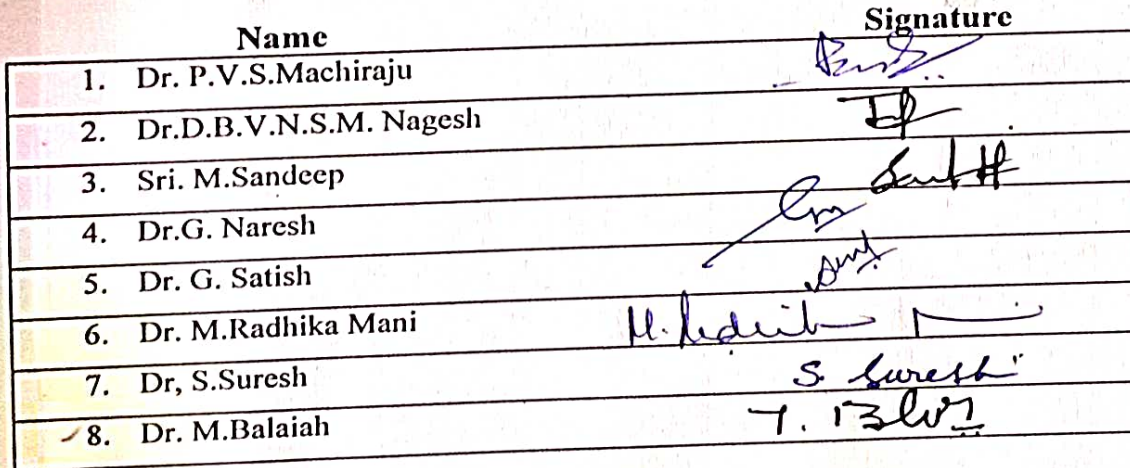 Name Signature
1. Dr. P.V.S.Machiraju
2. Dr.D.B.V.N.S.M. Nagesh
3. Sri. M.Sandeep
4. Dr.G. Naresh
5. Dr. G. Satish
6. Dr. M.Radhika Mani
7. Dr, S.Suresh S. Suresh
8. Dr. M.Balaiah